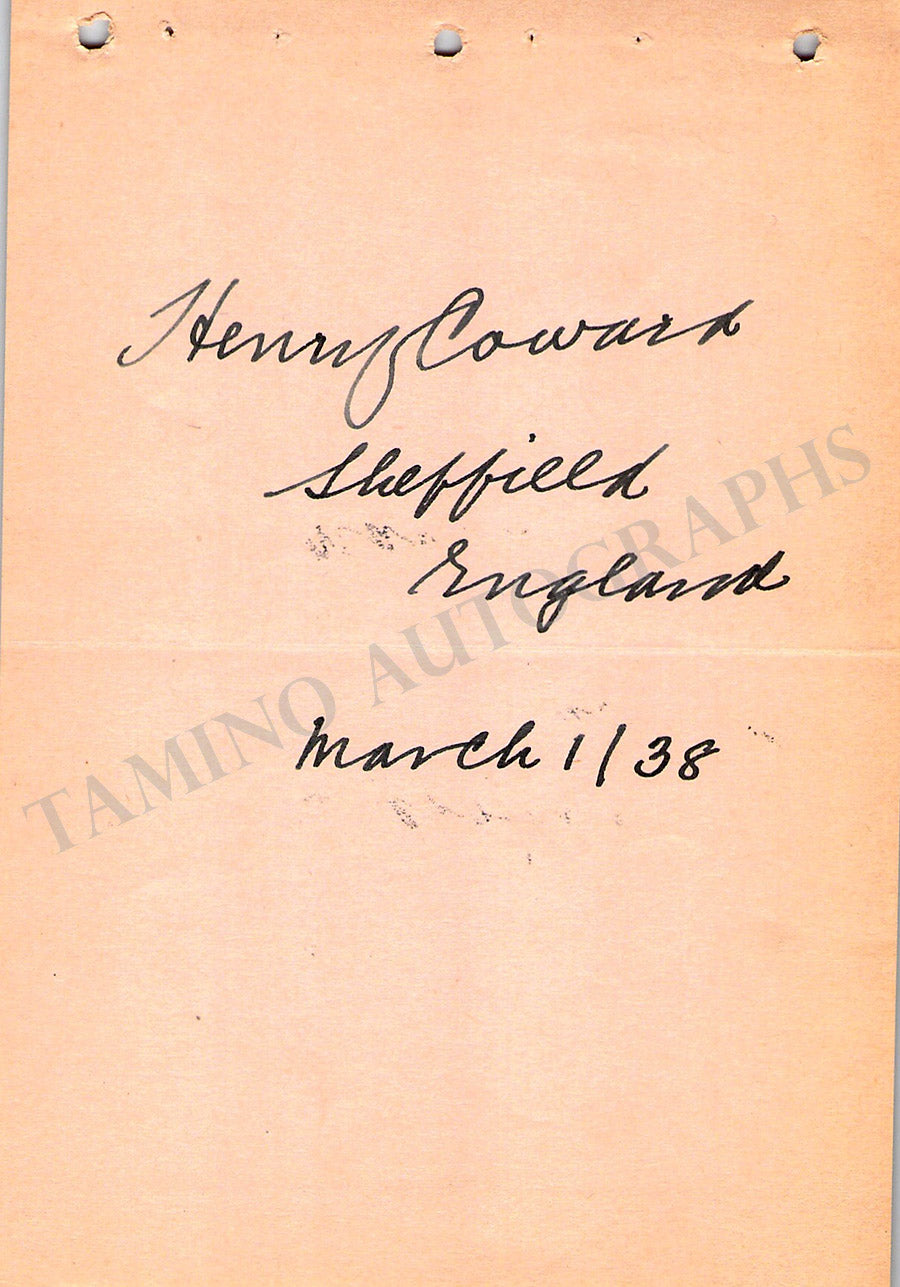 Henry Coward
Sheffield
England
March 1/38
TAMINO AUTOGRAPHS